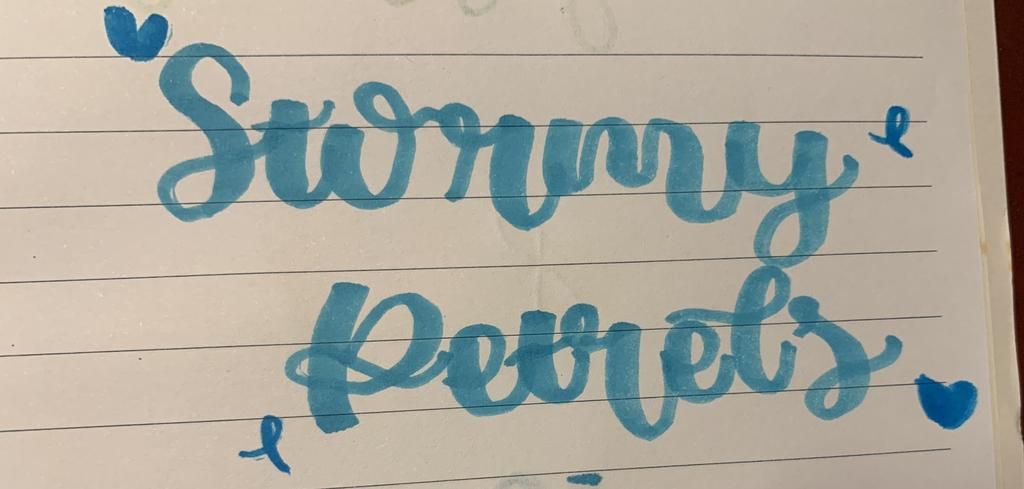 Stormy
Petrels